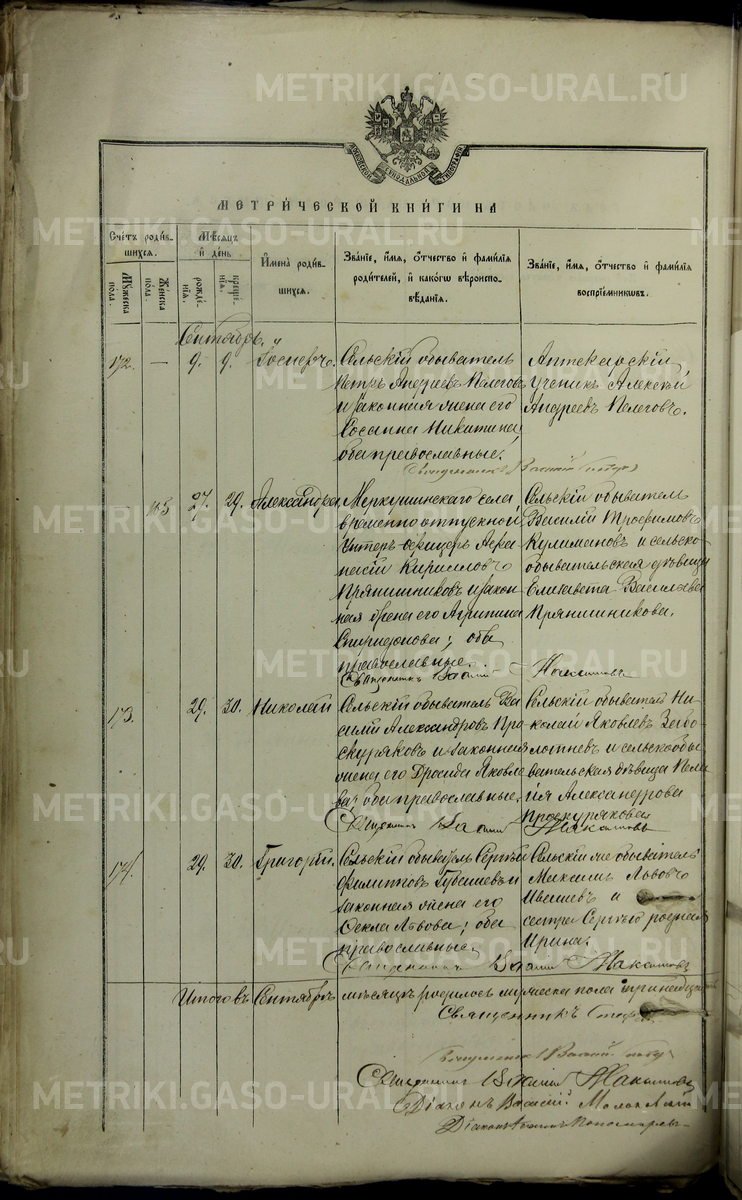 METRIKI.GASO-URAL.RU
МЕТРИ́ЧЕСКОЙ КНИ́ГИ НА
Сче́тъ роди́в-
шихся.
Мꙋ́жеска
по́ла.
Же́нска
по́ла.
Мѣ́сяцъ
и҆ де́нь
рожде́-
нїя.
креще́-
нїя.
И҆мена̀ роди́в-
шихся.
Зва́нїе, и҆́мя, ѻ҆́тчество и҆ фами́лїя
роди́телей, и҆ како́гѡ вѣроиспо-
вѣ́данїя.
Зва́нїе, и҆́мя, ѻ҆́тчество и҆ фами́лїя
воспрїе́мниковъ.
Сентябрь.
172. — 9. 9.
Сельскій обыватель
Петръ Андреевъ Пелеговъ
и законная жена его
Сосанна Никитина,
оба православные.
Аптекарскій
ученикъ Алексѣй
Андреевъ Пелеговъ.
165 27. 29. Александра.
Меркушинскаго села
временно отпускной
Унтеръ-офицеръ Аѳа-
насій Кирилловъ
Прянишниковъ и закон-
ная жена его Агрипина
Спиридонова; оба
православные.
Сельскій обыватель
Василій Трофимовъ
Кулимановъ и сельско-
обывательская дѣвица
Елисавета Васильева
Прянишникова.
Священникъ Василій
173. 29. 30. Николай
Сельскій обыватель Ва-
силій Александровъ Про-
скуряковъ и законная
жена его Дросида Яковле-
ва, оба православные.
Сельскій обыватель Ни-
колай Яковлевъ
и сельскообы-
вательская дѣвица Пела-
гія Александрова
Проскурякова
Священникъ Василій
174. 29. 30. Григорій.
Сельскій обыватель Сергѣй
Филипповъ и
законная жена его
Ѳекла Львова; оба
православные.
Сельскій же обыватель
Максимъ Львовъ
Ивашевъ и
сестра Сергѣю родная
Ирина.
Священникъ Василій
Итого въ Сентябрѣ мѣсяцѣ родилось мужеска пола
Священникъ
Священникъ Василій
Діаконъ Василій
Діаконъ Пономаревъ